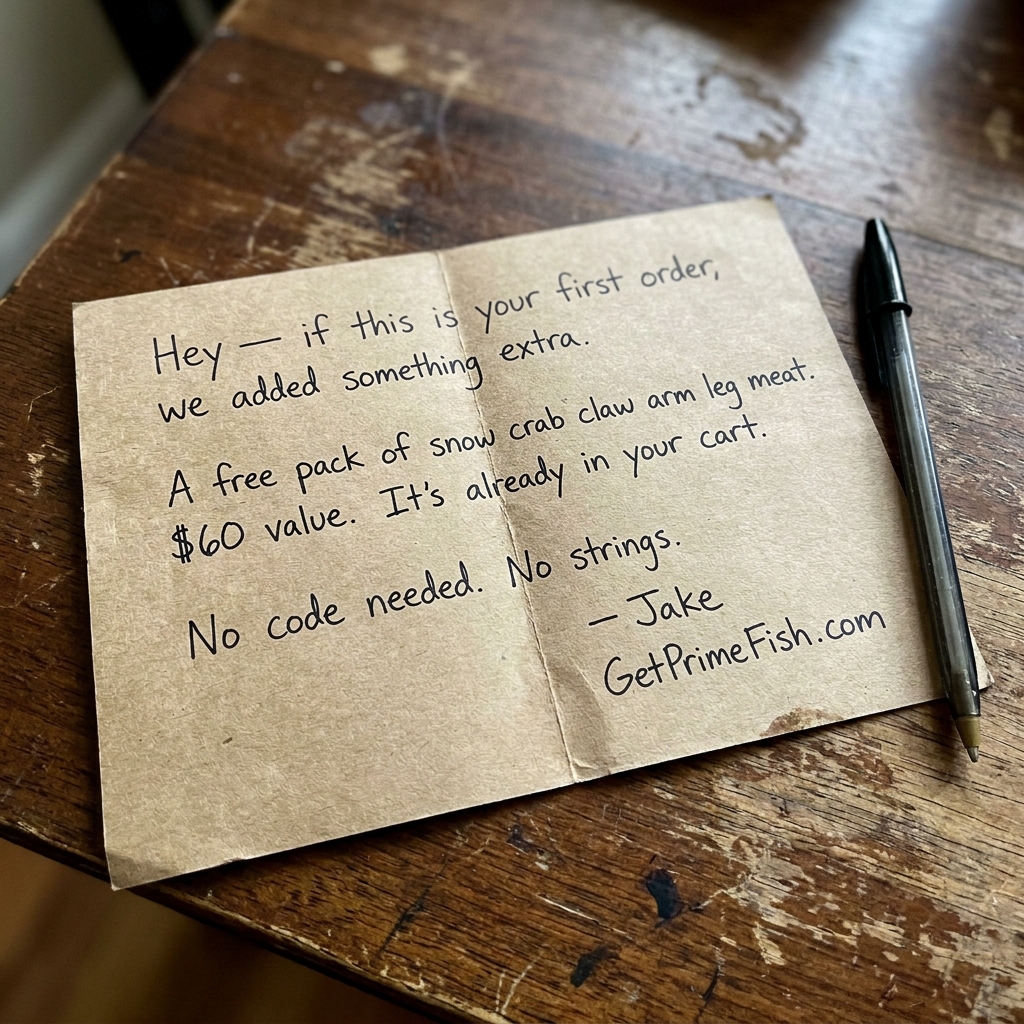 Hey — if this is your first order,
we added something extra.
A free pack of snow crab claw arm leg meat.
$60 value. It's already in your cart.
No code needed. No strings.
— Jake
GetPrimeFish.com